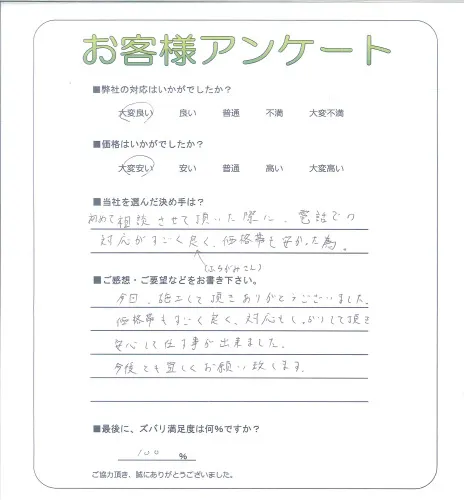 お客様アンケート
■弊社の対応はいかがでしたか？
大変良い 良い 普通 不満 大変不満
■価格はいかがでしたか？
大変安い 安い 普通 高い 大変高い
■当社を選んだ決め手は？
初めて相談させて頂いた際に、電話での
対応がすごく良く、価格帯も安かった為。
■ご感想・ご要望などをお書き下さい。
今日、施工して頂きありがとうございました。
価格帯もすごく良く、対応もしっかりして頂き
安心して任す事が出来ました。
今後とも宜しくお願い致します。
■最後に、ズバリ満足度は何%ですか？
100 %
ご協力頂き、誠にありがとうございました。